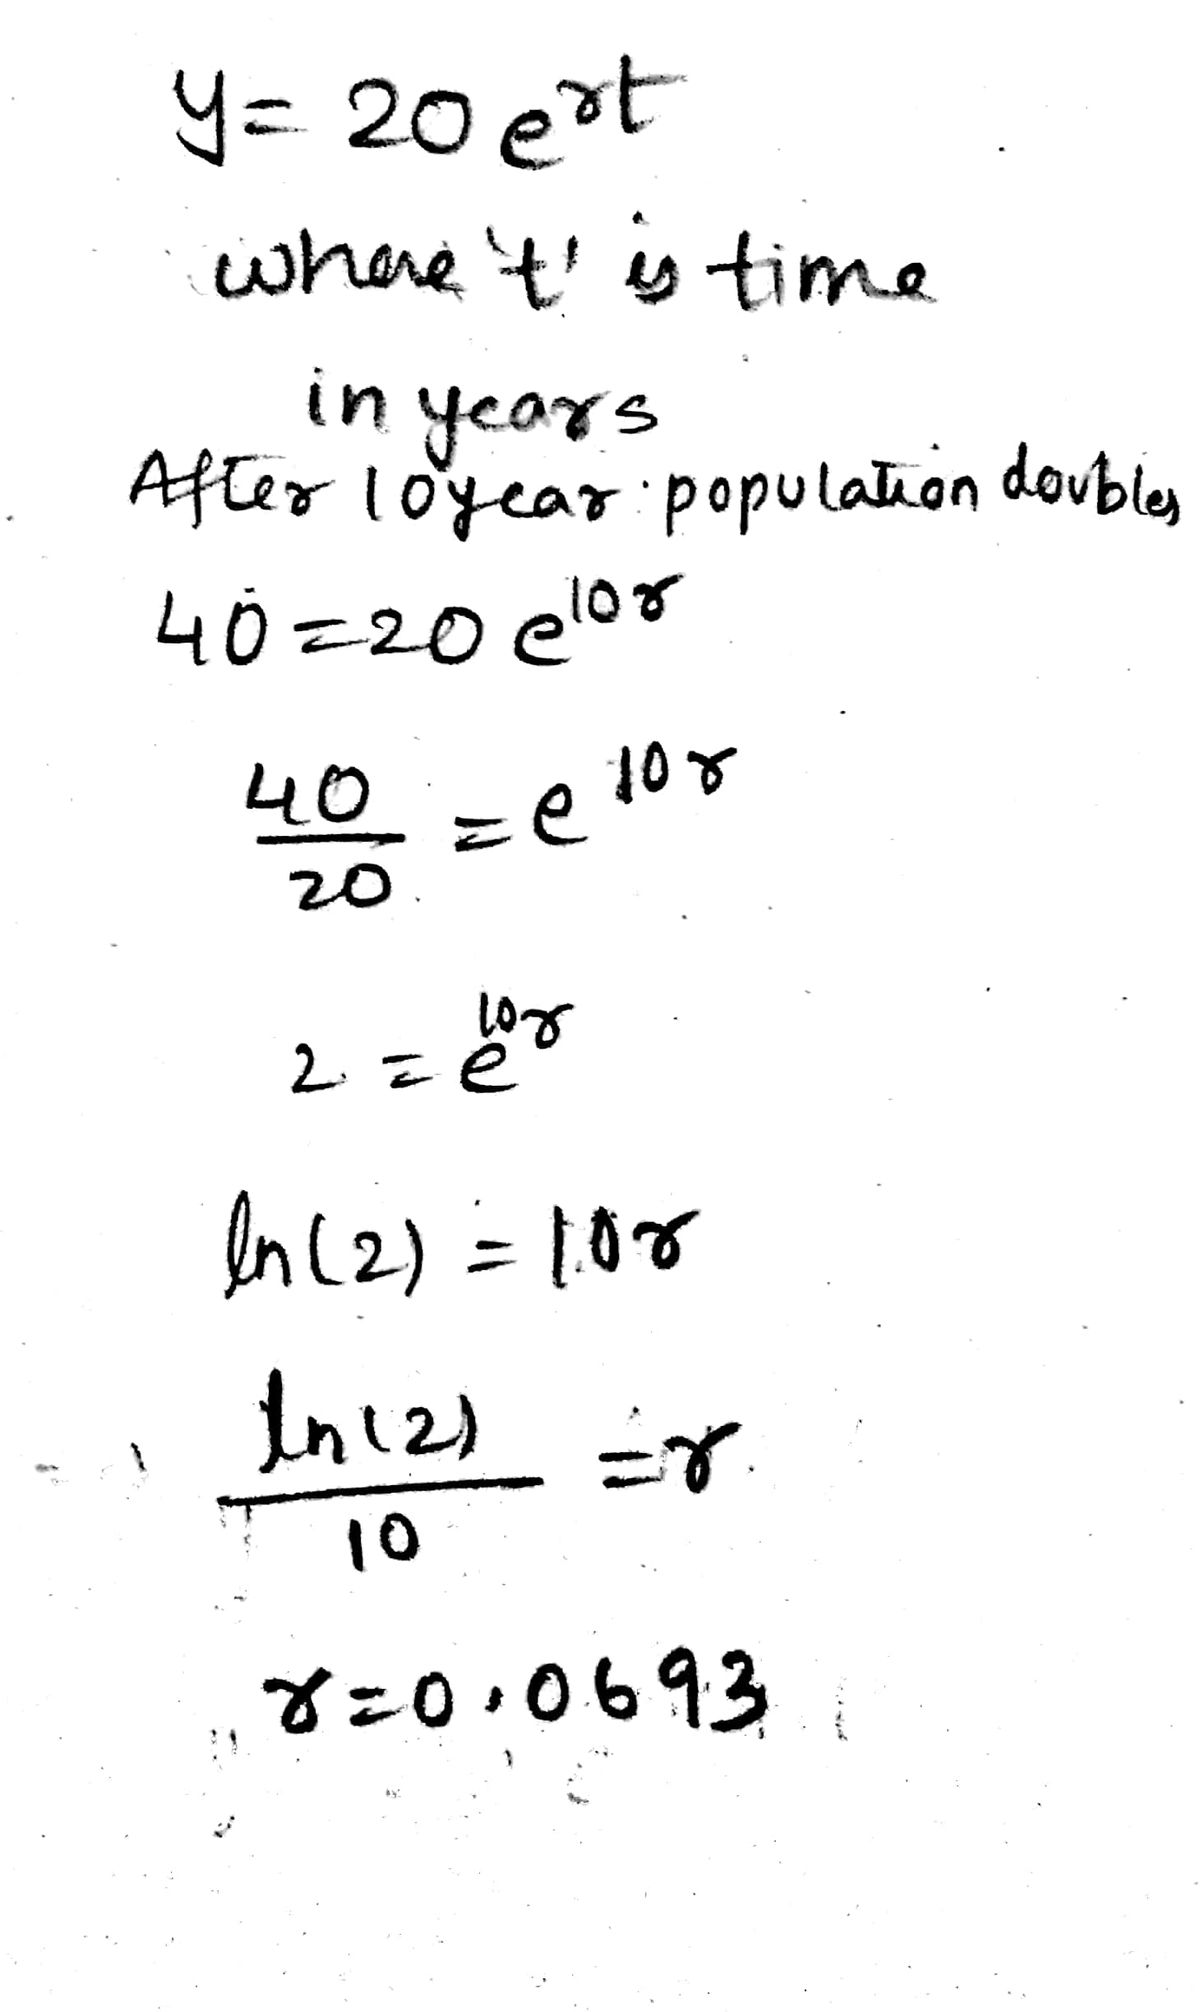 y = 20 e^rt
where 't' is time
in years
After 10 year population doubles
40 = 20 e^10r
40/20 = e^10r
2 = e^10r
ln(2) = 10r
ln(2)/10 = r
r = 0.0693